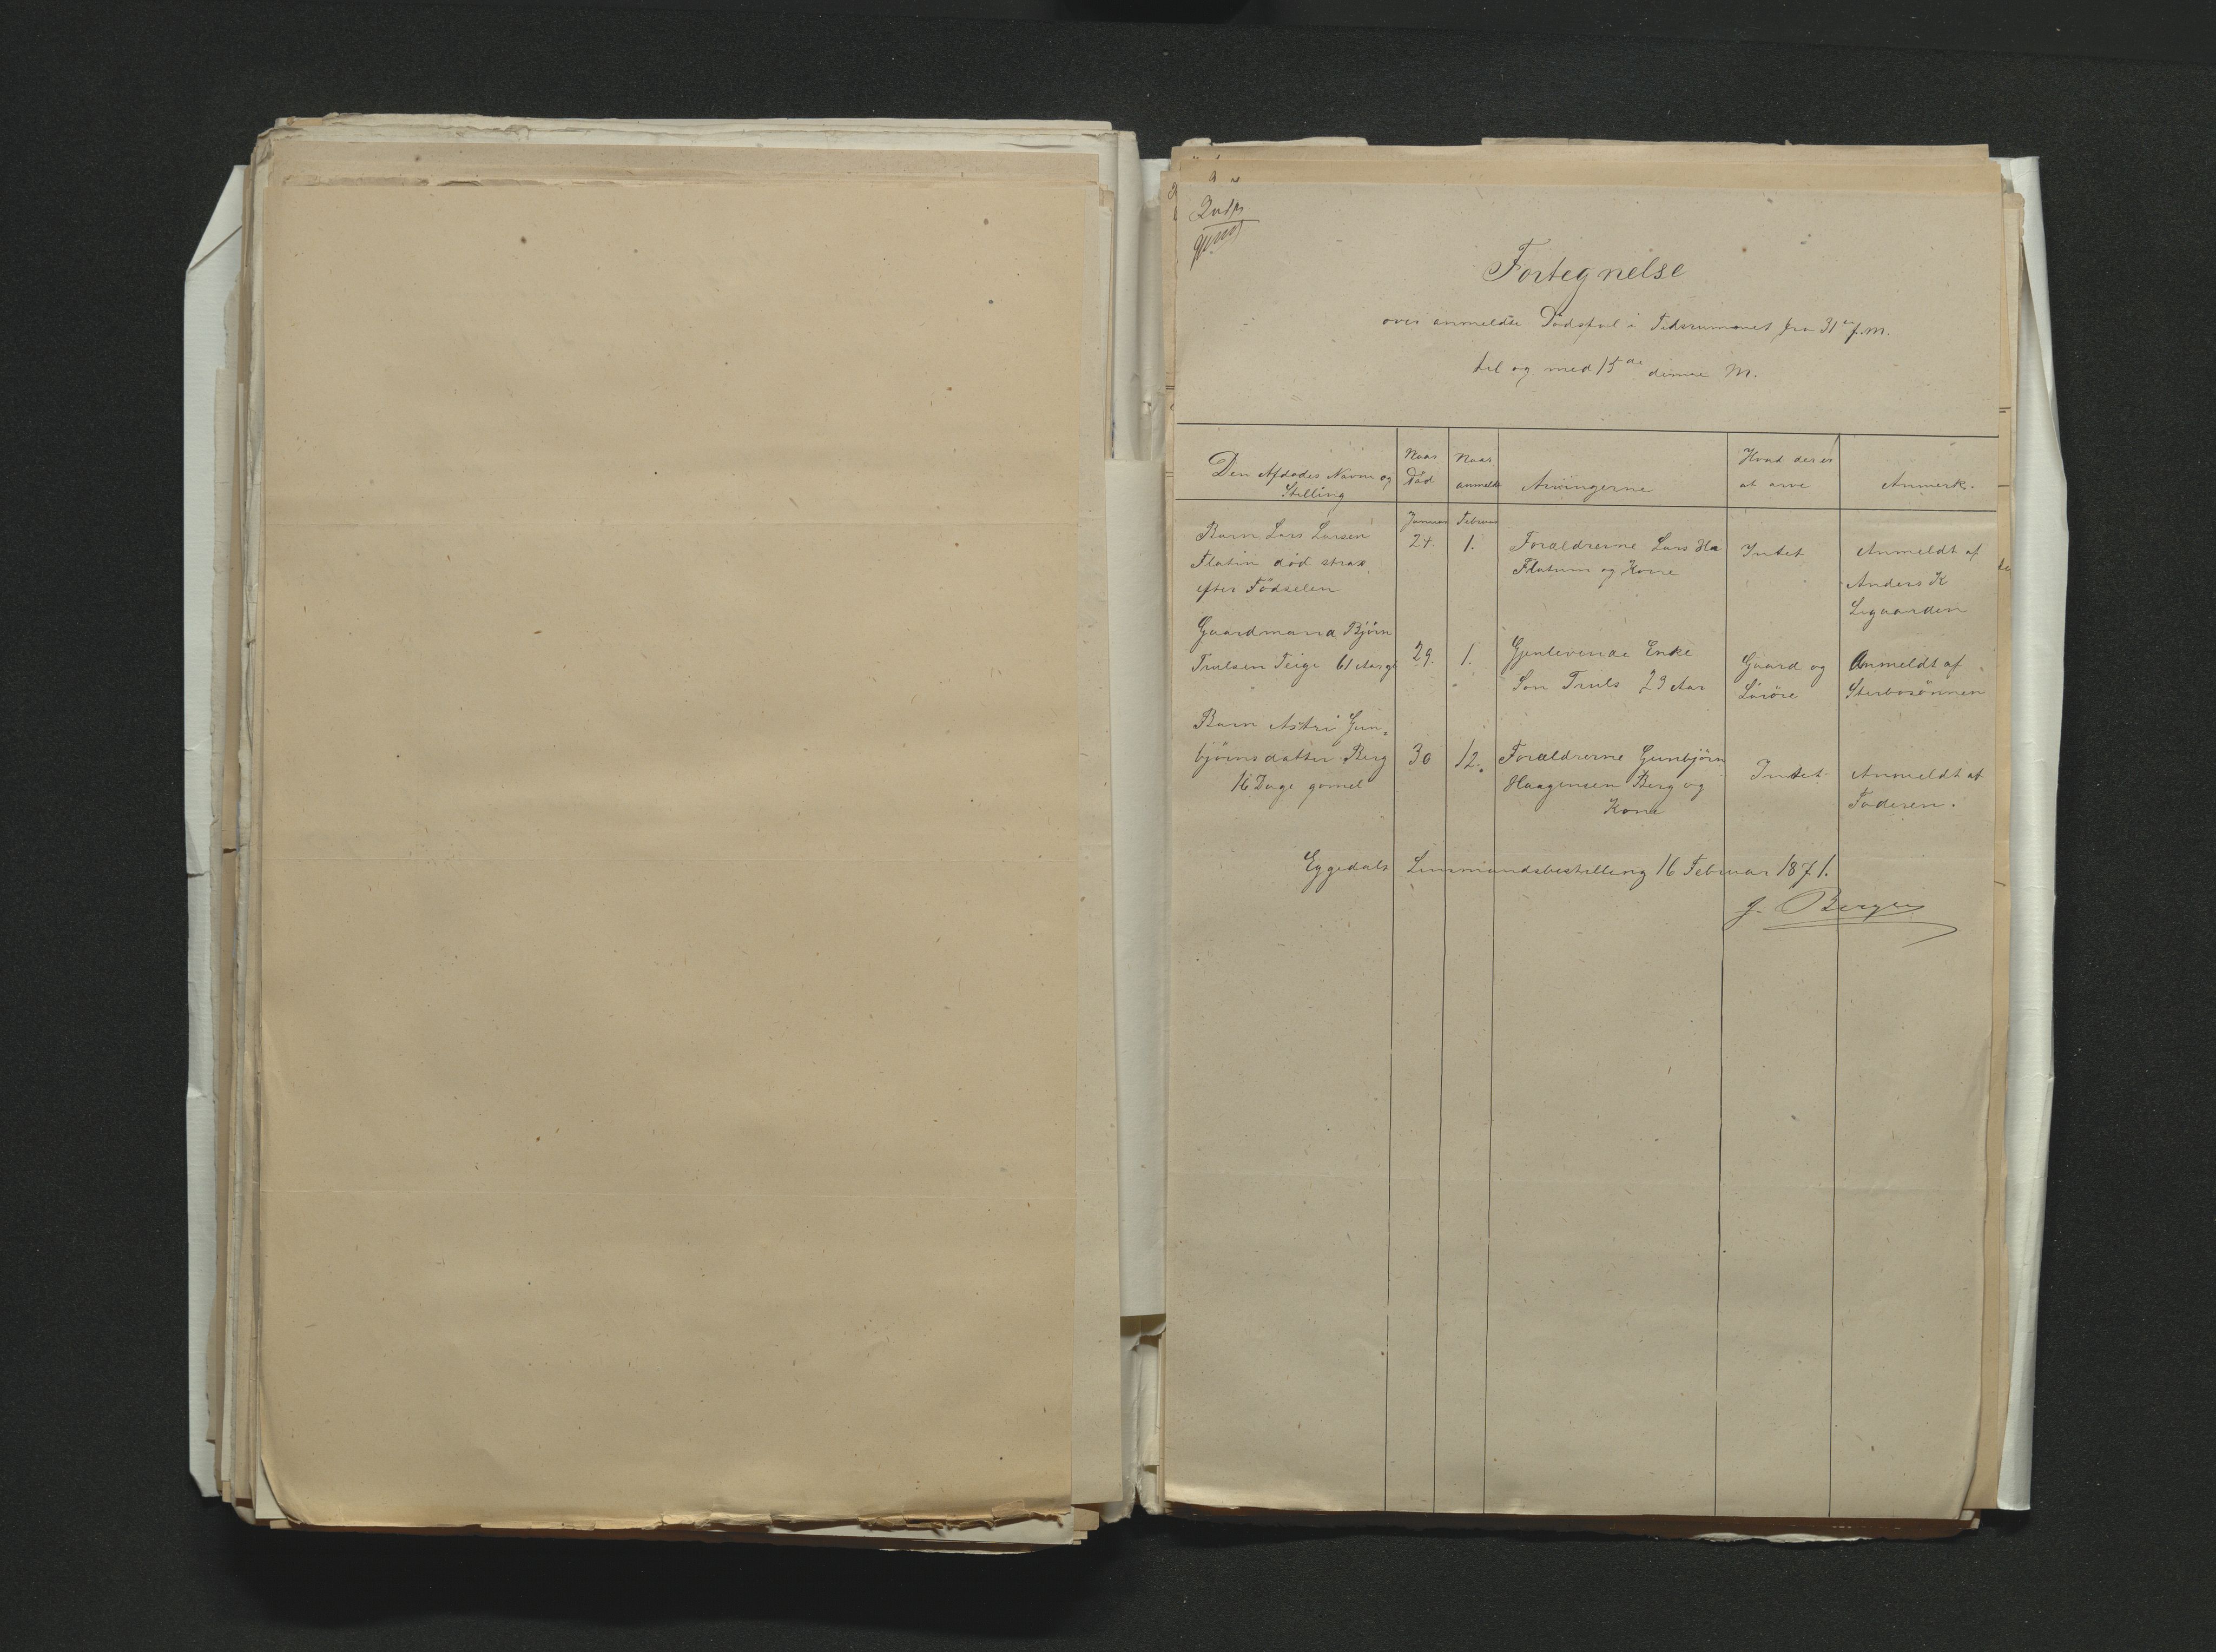 Fortegnelse
over anmeldte Dödsfal i Tidsrummet fra 31te f. M.
til og med 15de denne M.
Den Afdødes Navn og Stilling
Naar Död
Naar anmeldt
Arvingerne
Hvad der er at arve
Anmerk.
Januar Februar
Barn Lars Larsen 24. 1. Forældrerne Lars Intet Anmeldt af
Flatin död strax Flatum og Kone Anders K
efter Födselen
Gaardmand Björn
Trulsen Teige 61 Aar gl 29. 1. Gjenlevende Enke Gaard og Anmeldt af
Sön Truls 29 Aar Lösöre Sterbosönnen
Barn Astri Gun-
björnsdatter Berg 30 12. Forældrerne Gunbjörn Intet Anmeldt af
16 Dage gamel Haagensen Berg og Faderen.
Kone
Eggedals Lensmandsbestilling 16 Februar 1871.
J. Bergen